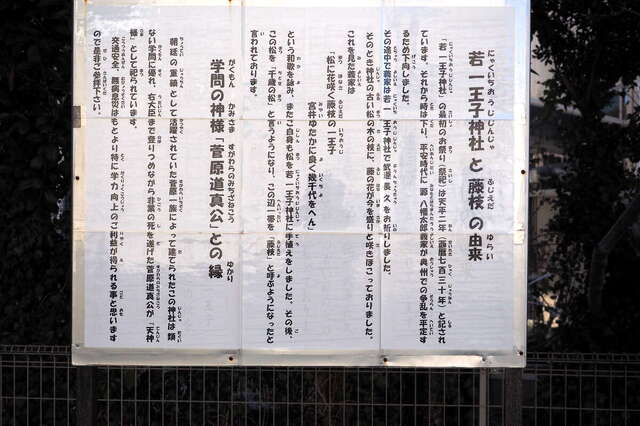 若一王子神社と「藤枝」の由来
「若一王子神社」の最初のお祭り（祭祀）は天平二年（西暦七百三十年）と記され
ています。それから時は下り、平安時代に源八幡太郎義家が奥州での争乱を平定す
るため下向しました。
その途中で義家は若一王子神社で武運長久をお祈りしました。
そのとき神社の古い松の木の枝に、藤の花が今を盛りと咲きほこっておりました。
これを見た義家は
「松に花咲く藤枝の一王子
宮井ゆたかに良く幾千代をへん」
という和歌を詠み、またご自身も松を若一王子神社に手植えをしました。その後、
この松を「千歳の松」と言うようになり、この辺一帯を「藤枝」と呼ぶようになったと
言われております。
学問の神様「菅原道真公」との縁
朝廷の重鎮として活躍されていた菅原一族によって建てられたこの神社は、類
ない学問に優れ、右大臣まで登りつめながら非業の死を遂げた菅原道真公が「天神
様」として祀られています。
交通安全、無病息災はもとより特に学力向上のご利益が得られる事と思います
ので是非ご参拝下さい。